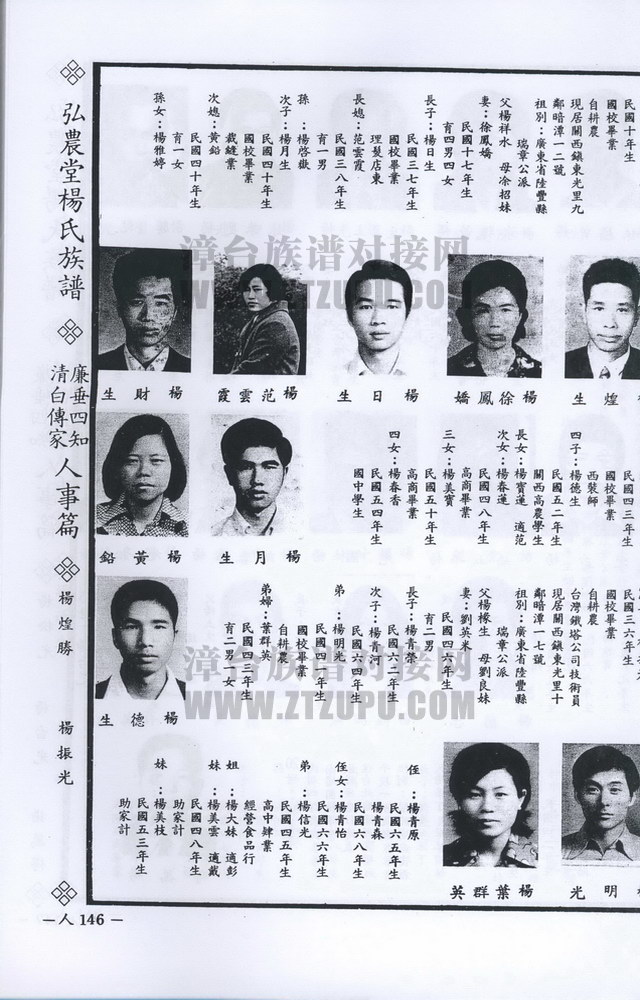 弘農堂楊氏族譜
廉垂四知
清白傳家
人事篇
楊煌勝
楊振光
民國十年生
國校畢業
自耕農
現居關西鎮東光里九
鄰暗潭一二號
祖別：廣東省陸豐縣
瑞章公派
父楊祥水 母涂招妹
妻：徐鳳嬌
民國十七年生
育四男四女
長子：楊日生
民國三七年生
國校畢業
理髮店東
長媳：范雲霞
民國三八年生
育一男
孫：楊啓嶽
次子：楊月生
民國四十年生
國校畢業
裁縫業
次媳：黃鉛
民國四十年生
育一女
孫女：楊雅婷
漳台族谱对接网
WWW.ZTZUPU.COM
生財楊
霞雲范楊
生日楊
嬌鳳徐楊
生煌
民國四三年生
國校畢業
西裝師
四子：楊德生
民國五二年生
關西高農學生
長女：楊寶蓮 適范
次女：楊春蓮
民國四八年生
高商畢業
三女：楊美寶
民國五十年生
高商畢業
四女：楊春香
民國五四年生
國中學生
鉛黃楊
生月楊
民國三六年生
國校畢業
自耕農
台灣鐵塔公司技術員
現居關西鎮東光里十
鄰暗潭一七號
祖別：廣東省陸豐縣
瑞章公派
父楊椽生 母劉良妹
妻：劉英米
民國四六年生
育二男
長子：楊青榮
民國六二年生
次子：楊青河
民國六四年生
弟：楊明光
民國四一年生
國校畢業
自耕農
弟婦：葉群英
民國四三年生
育二男一女
漳台族谱对接网
WWW.ZTZUPU.COM
生德楊
侄：楊青原
民國六五年生
楊青森
民國六八年生
侄女：楊青怡
民國六六年生
弟：楊信光
民國四五年生
高中肄業
經營食品行
姐：楊大妹 適彭
妹：楊美雲 適戴
民國四八年生
助家計
妹：楊美枝
民國五三年生
助家計
英群葉楊
光明
－人 146－